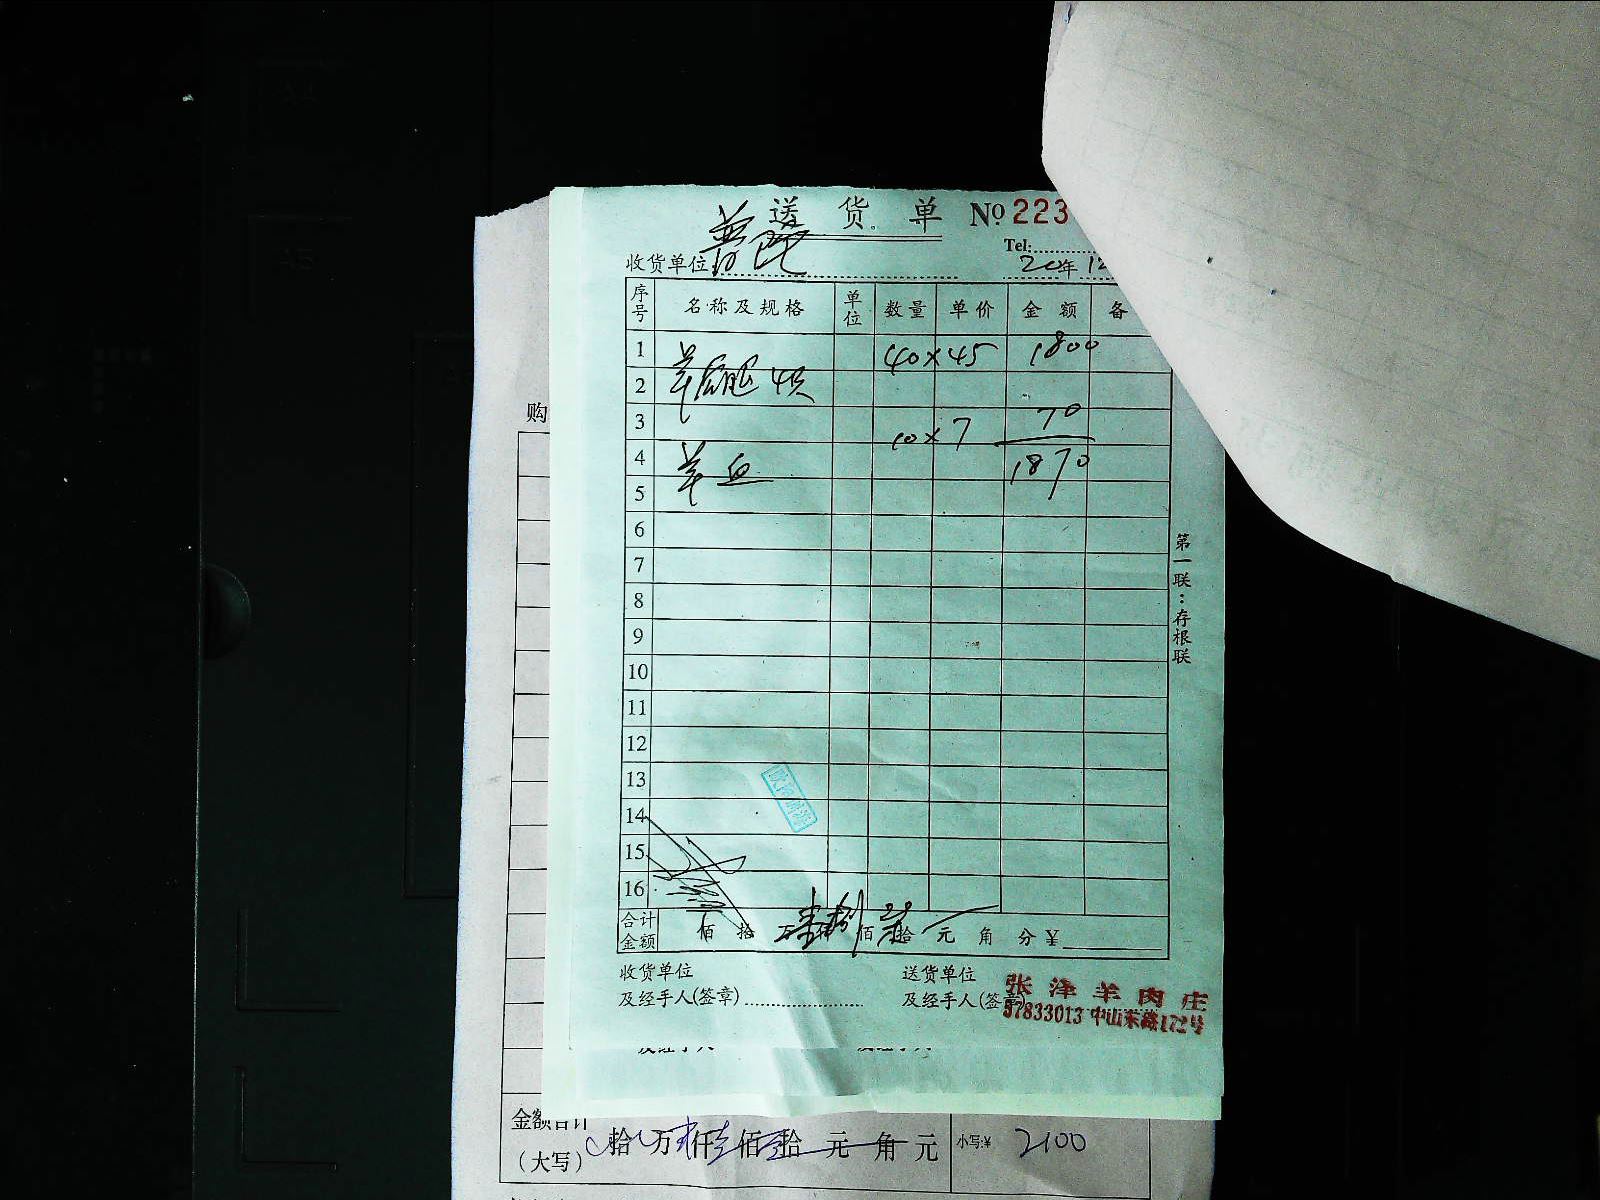 送货单 № 223
Tel:
收货单位 普陀
20年12
序号 名称及规格 单位 数量 单价 金额 备
1 40×45 1800
2 羊后腿 4只
3 10×7 70
4 羊血 1870
5
6
7
8
9
10
11
12
13
14
15
16
合计金额 佰 拾 万 仟 佰 拾 元 角 分 ¥
收货单位 送货单位
及经手人(签章) 及经手人(签章)
张泽羊肉庄
57833013 中山东路172号
第一联:存根联
购
金额合计
(大写) 拾 万 仟 佰 拾 元 角 元 小写:¥ 2100